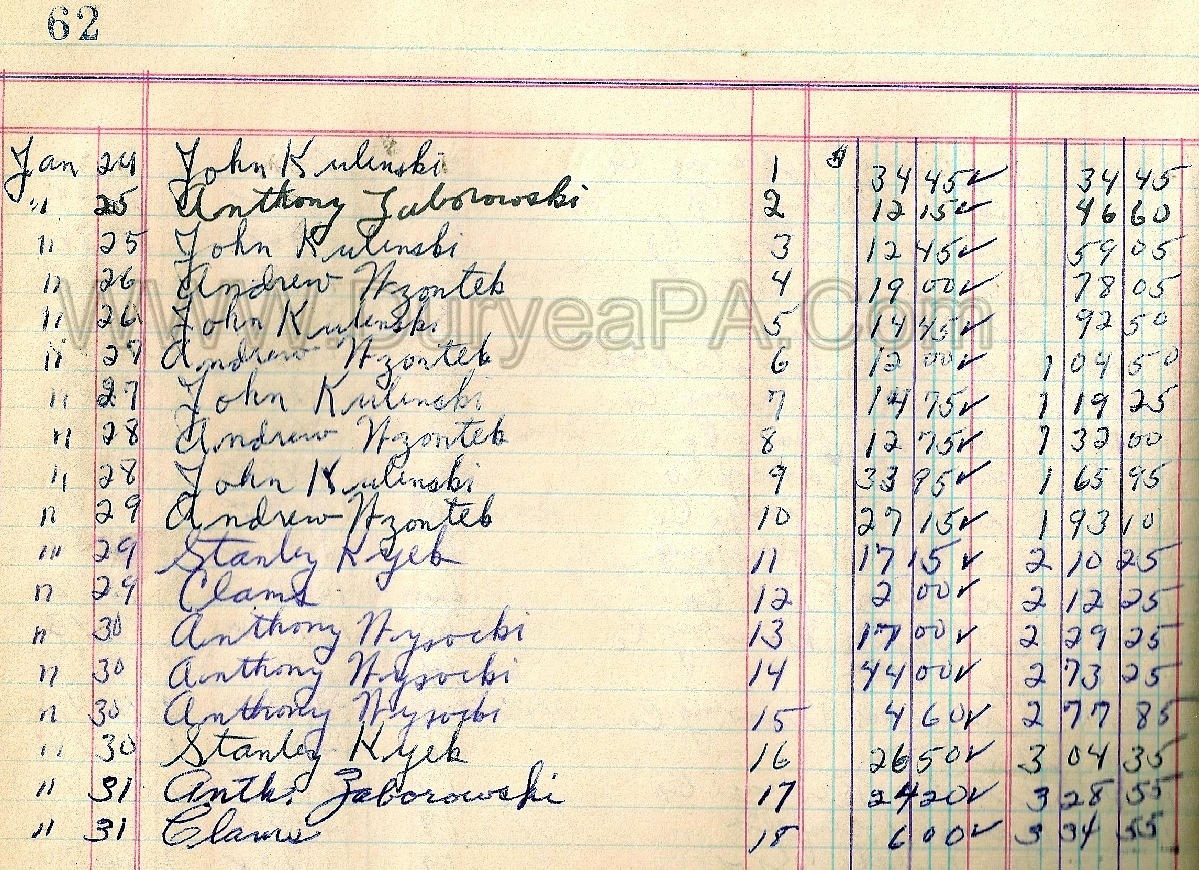 62
Jan 24 John Kulinski 1 $ 34 45✓ 34 45
" 25 Anthony Zaborowski 2 12 15✓ 46 60
" 25 John Kulinski 3 12 45✓ 59 05
" 26 Andrew Wzontek 4 19 00✓ 78 05
" 26 John Kulinski 5 14 45✓ 92 50
" 27 Andrew Wzontek 6 12 00✓ 1 04 50
" 27 John Kulinski 7 14 75✓ 1 19 25
" 28 Andrew Wzontek 8 12 75✓ 1 32 00
" 28 John Kulinski 9 33 95✓ 1 65 95
" 29 Andrew Wzontek 10 27 15✓ 1 93 10
" 29 Stanley Kyek 11 17 15✓ 2 10 25
" 29 Clams 12 2 00✓ 2 12 25
" 30 Anthony Wysocki 13 17 00✓ 2 29 25
" 30 Anthony Wysocki 14 44 00✓ 2 73 25
" 30 Anthony Wysocki 15 4 60✓ 2 77 85
" 30 Stanley Kyek 16 26 50✓ 3 04 35
" 31 Anth. Zaborowski 17 24 20✓ 3 28 55
" 31 Clams 18 6 00✓ 3 34 55
www.DuryeaPA.Com